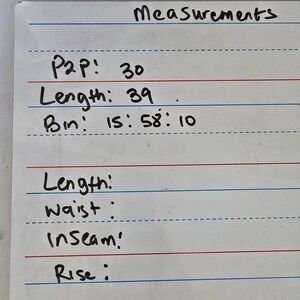 Measurements
P2P: 30
Length: 39
Bin: 15:58:10
Length:
Waist:
Inseam:
Rise: